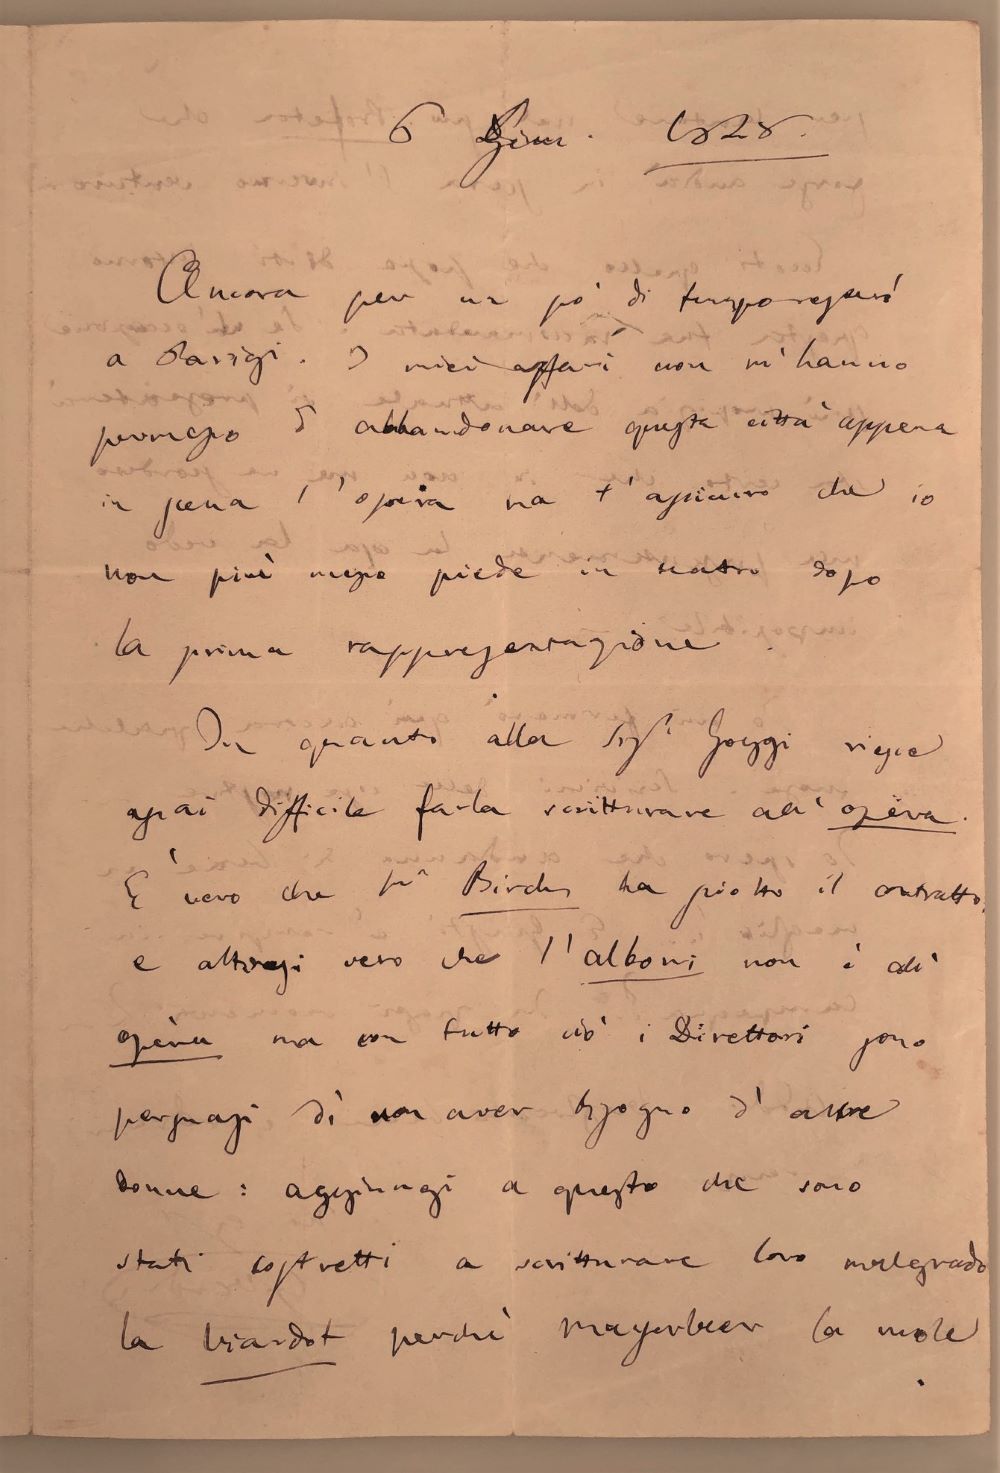 6 Gen. 1848.
Ancora per un pò di tempo resterò
a Parigi. I miei affari non m'hanno
permesso d'abbandonare questa città appena
in scena l'opera ma t'assicuro che io
non più messo piede in teatro dopo
la prima rappresentazione.
In quanto alla Sigra Goggi riesce
assai difficile farla scritturare all' opéra.
È vero che la ha sciolto il contratto,
e altresi vero che l'alboni non è all'
opéra ma con tutto ciò i Direttori sono
persuasi di non aver bisogno d'altre
donne: aggiungi a questo che sono
stati costretti a scritturare loro malgrado
la Viardot perchè Mayerbeer la vuole